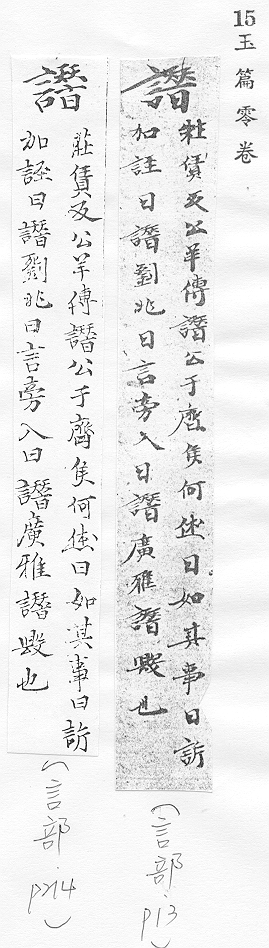 15玉篇零卷
譖
莊賃反公羊傳譖公于齊侯何㤀曰如其事曰訴
加誣曰譖劉兆曰言旁入曰譖廣雅譖毀也
(言部 p13)
譖
莊賃反公羊傳譖公于齊侯何㤀曰如其事曰訴
加誣曰譖劉兆曰言旁入曰譖廣雅譖毀也
(言部 p214)